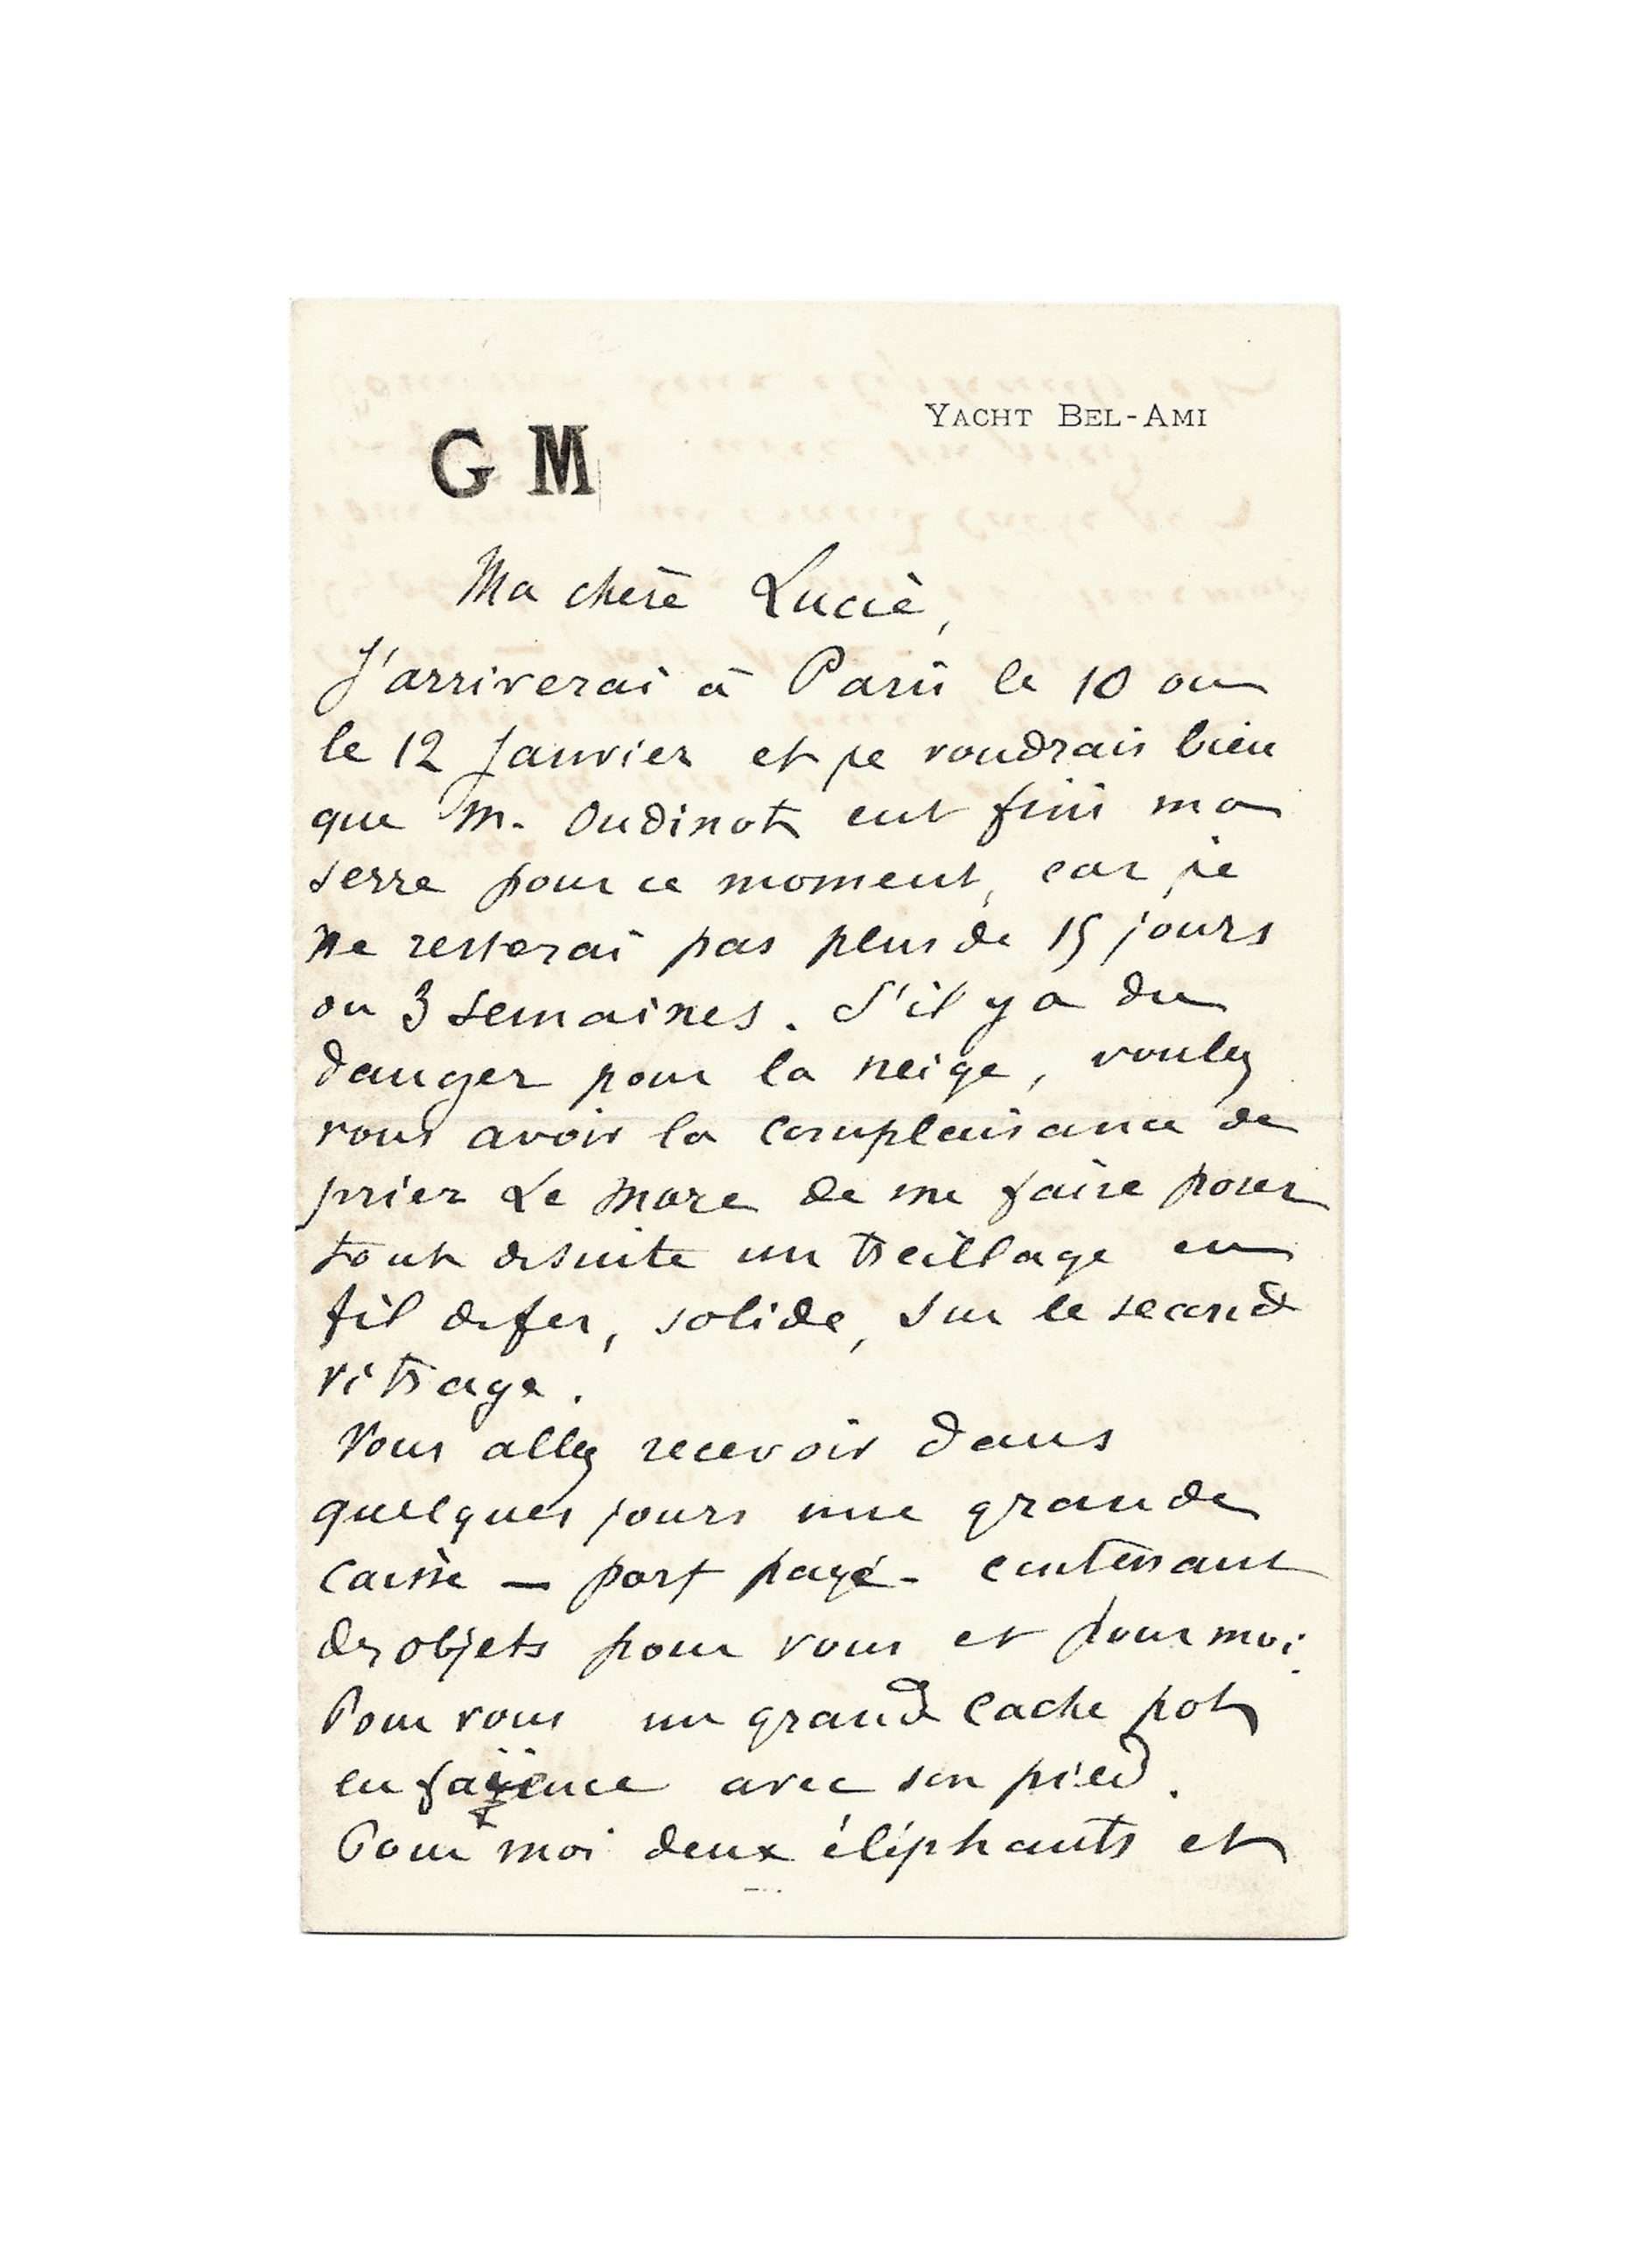 YACHT BEL-AMI
G M
Ma chère Lucie,
J'arriverai à Paris le 10 ou
le 12 Janvier et je voudrais bien
que M. Oudinot eut fini ma
serre pour ce moment, car je
ne resterai pas plus de 15 jours
ou 3 semaines. S'il y a du
danger pour la neige, voulez
vous avoir la complaisance de
prier Le More de me faire poser
tout de suite un treillage en
fil de fer, solide, sur le second
vitrage.
Vous allez recevoir dans
quelques jours une grande
caisse — port payé - contenant
des objets pour vous et pour moi.
Pour vous un grand cache pot
en faïence avec son pied.
Pour moi deux éléphants et